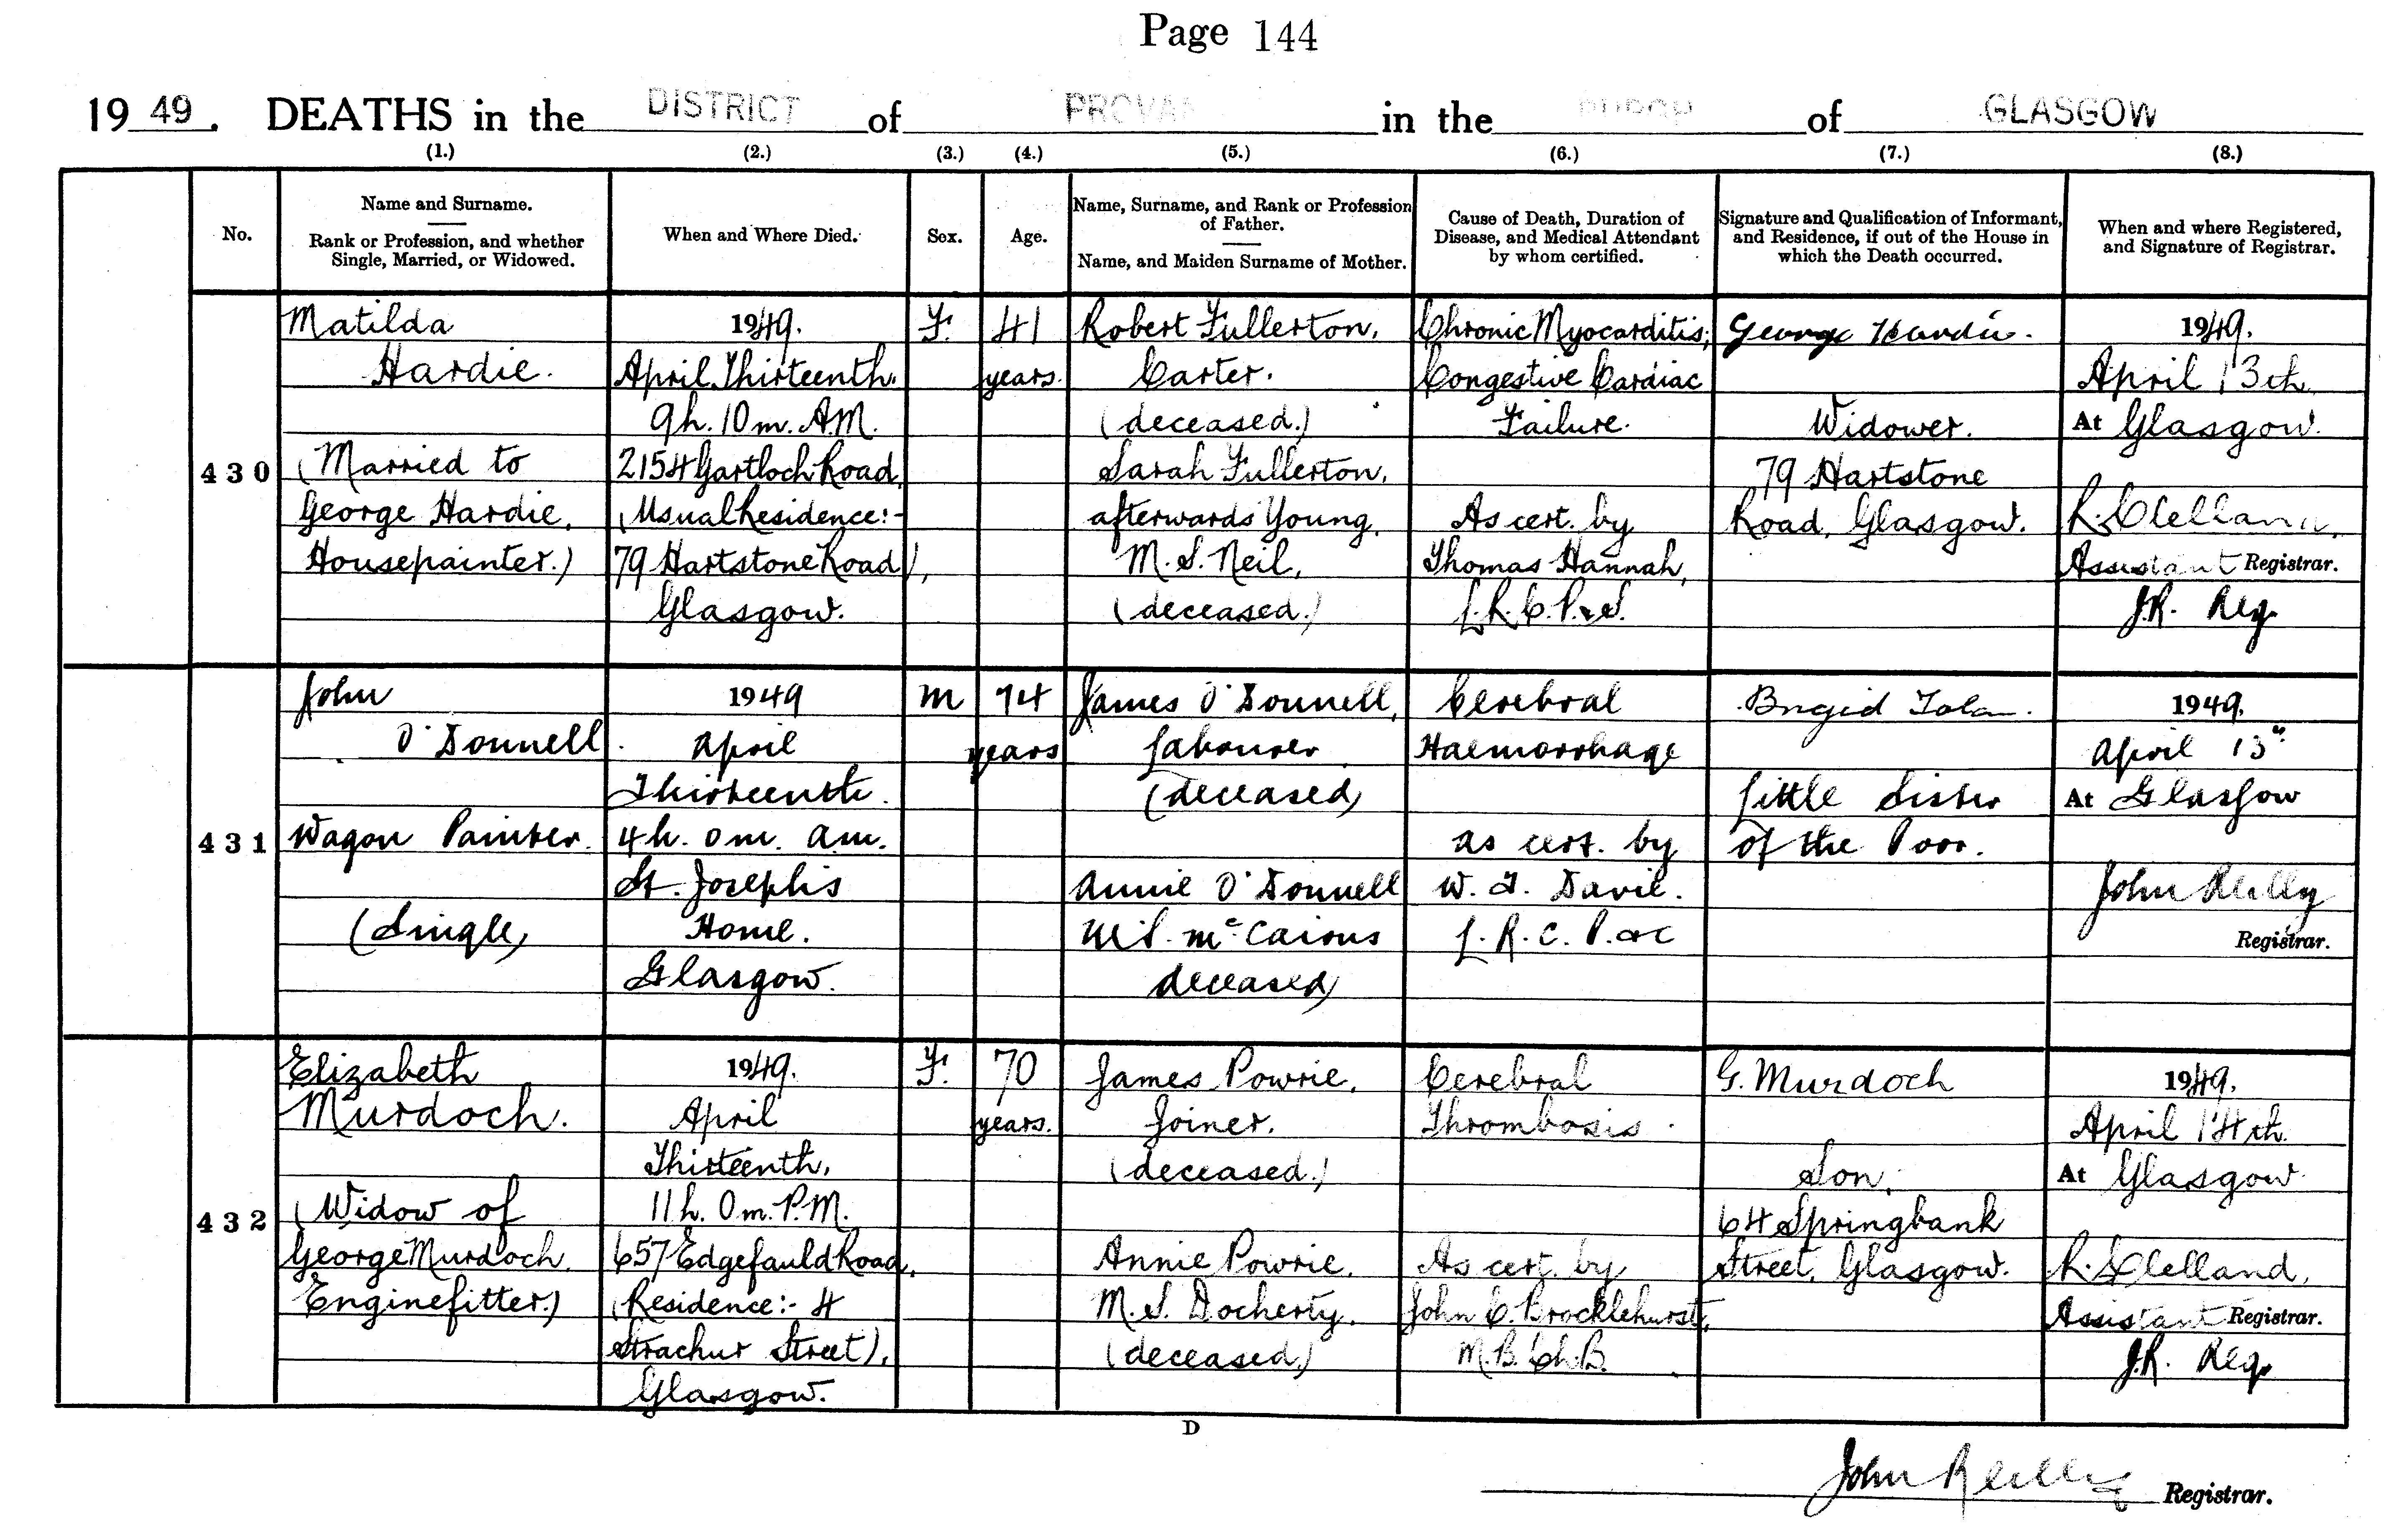 Page 144
1949. DEATHS in the DISTRICT of PROVAN in the BURGH of GLASGOW
(1.) (2.) (3.) (4.) (5.) (6.) (7.) (8.)
No.
Name and Surname.
Rank or Profession, and whether
Single, Married, or Widowed.
When and Where Died.
Sex.
Age.
Name, Surname, and Rank or Profession
of Father.
Name, and Maiden Surname of Mother.
Cause of Death, Duration of
Disease, and Medical Attendant
by whom certified.
Signature and Qualification of Informant,
and Residence, if out of the House in
which the Death occurred.
When and where Registered,
and Signature of Registrar.
430
Matilda
Hardie.
(Married to
George Hardie,
Housepainter.)
1949.
April Thirteenth.
9h. 10m. A.M.
2154 Gartloch Road,
(Usual Residence:-
79 Hartstone Road),
Glasgow.
F.
41
years.
Robert Fullerton,
Carter.
(deceased.)
Sarah Fullerton,
afterwards Young,
M.S. Neil,
(deceased.)
Chronic Myocarditis;
Congestive Cardiac
Failure.
As cert. by
Thomas Hannah,
L.R.C.P.&S.
George Hardie.
Widower.
79 Hartstone
Road, Glasgow.
1949.
April 13th.
At Glasgow.
R. Clelland,
Assistant Registrar.
J.R. Reg.
431
John
O'Donnell
Wagon Painter.
(Single)
1949
April
Thirteenth.
4h. 0m. am.
St. Joseph's
Home.
Glasgow.
M
74
years
James O'Donnell,
Labourer
(deceased)
Annie O'Donnell
MS. McCairns
deceased)
Cerebral
Haemorrhage
as cert. by
W. J. Davie.
L.R.C.P. &c
Brigid
Little Sister
of the Poor.
1949.
April 13"
At Glasgow
John Reilly
Registrar.
432
Elizabeth
Murdoch.
(Widow of
George Murdoch,
Enginefitter.)
1949.
April
Thirteenth,
11h. 0m. P.M.
657 Edgefauld Road,
(Residence:- 4
Strachur Street),
Glasgow.
F.
70
years.
James Powrie,
Joiner.
(deceased.)
Annie Powrie,
M.S. Docherty.
(deceased.)
Cerebral
Thrombosis.
As cert. by
John C. Brocklehurst,
M.B. Ch.B.
G. Murdoch
Son,
64 Springbank
Street, Glasgow.
1949.
April 14th.
At Glasgow
R. Clelland,
Assistant Registrar.
J.R. Reg.
D
John Reilly Registrar.